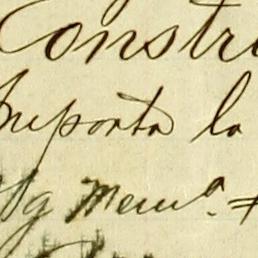 Constru
Importa la
Mem.ª